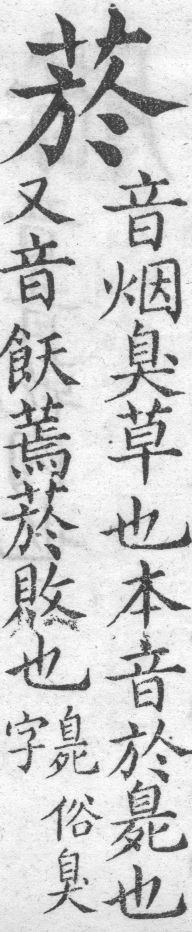 菸
音烟臭草也本音於臰也
又音飫蔫菸敗也
臰俗臭
字